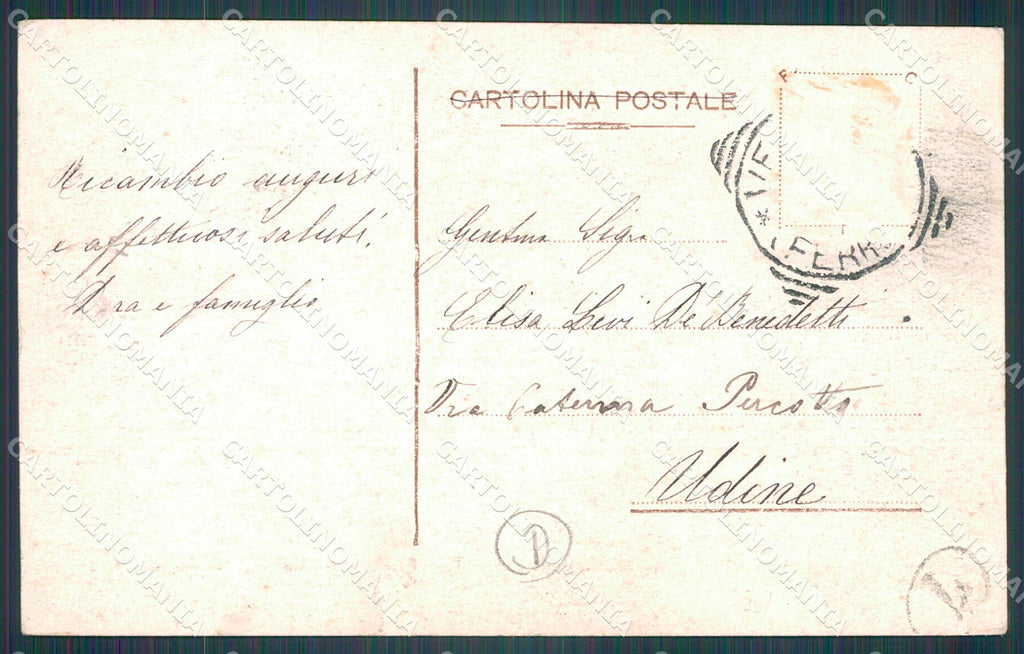 CARTOLINA POSTALE
Ricambio auguri
e affettuosi saluti.
e famiglia
Gentma Sigra
Elisa Levi De Benedetti
Via Caterina Percoto
Udine
F C
T
* VE
FERR
L
CARTOLINOMANIA